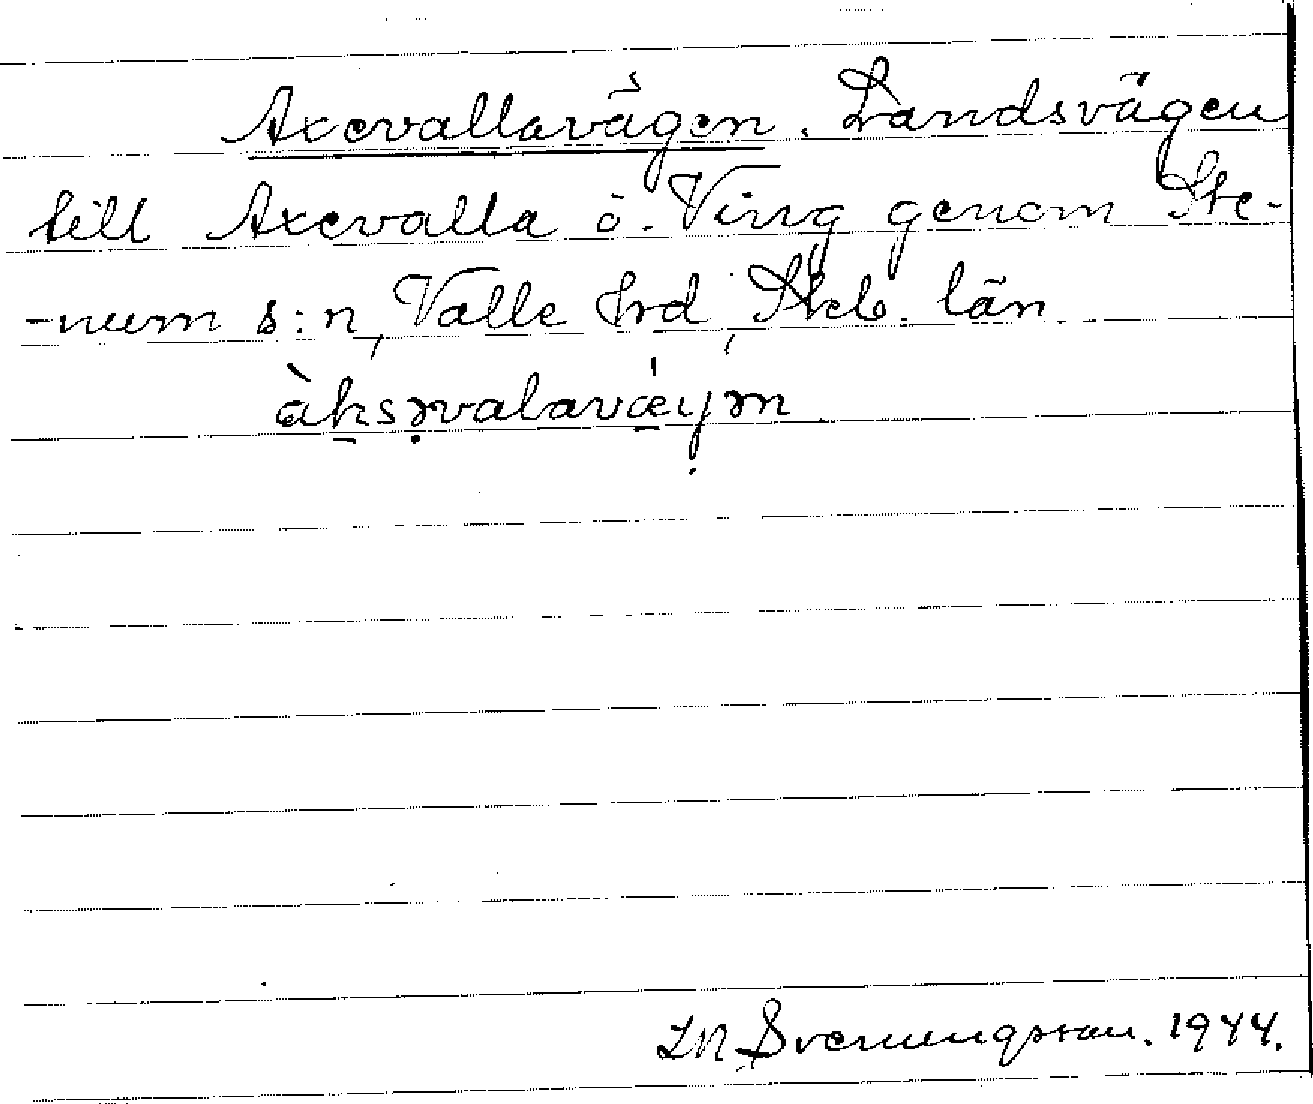 Axevallavägen. Landsvägen
till Axevalla ö. Ving genom Ste-
-num s:n, Valle hrd, Skb. län.
àksəvalavǽγən
LN Svenungsson. 1944.